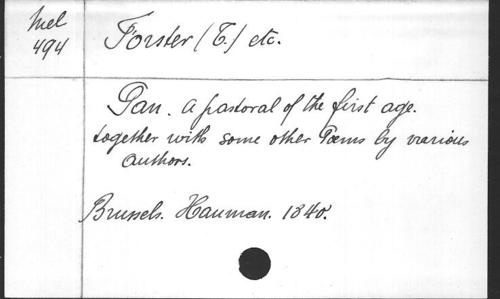 Mel
494
Forster (T.) etc.
Pan. A pastoral of the first age.
together with some other Poems by various
authors.
Brussels. Hauman. 1840.